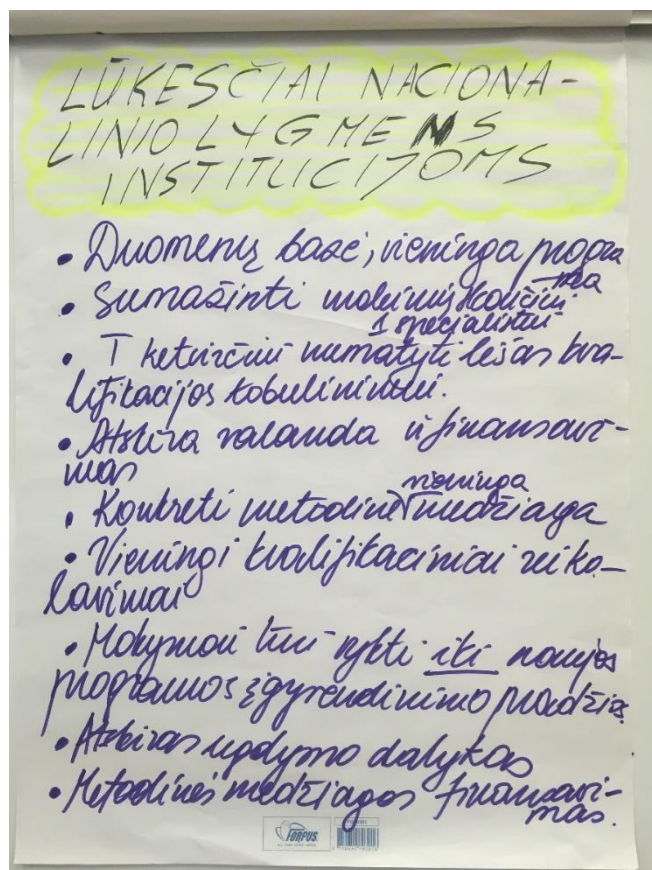 LŪKESČIAI NACIONA-
LINIO LYGMENS
INSTITUCIJOMS
• Duomenų bazė, vieninga progra
ma
• Sumažinti mokinių skaičių
1 specialistui
• I ketvirčiui numatyti lėšas kva-
lifikacijos tobulinimui.
• Atskira valanda ir finansavi-
mas
• Konkreti metodinė vieninga medžiaga
• Vieningi kvalifikaciniai reika-
lavimai
• Mokymai turi vykti iki naujos
programos įgyvendinimo pradžios.
• Atskiras ugdymo dalykas
• Metodinės medžiagos finansavi-
mas.
FORPUS